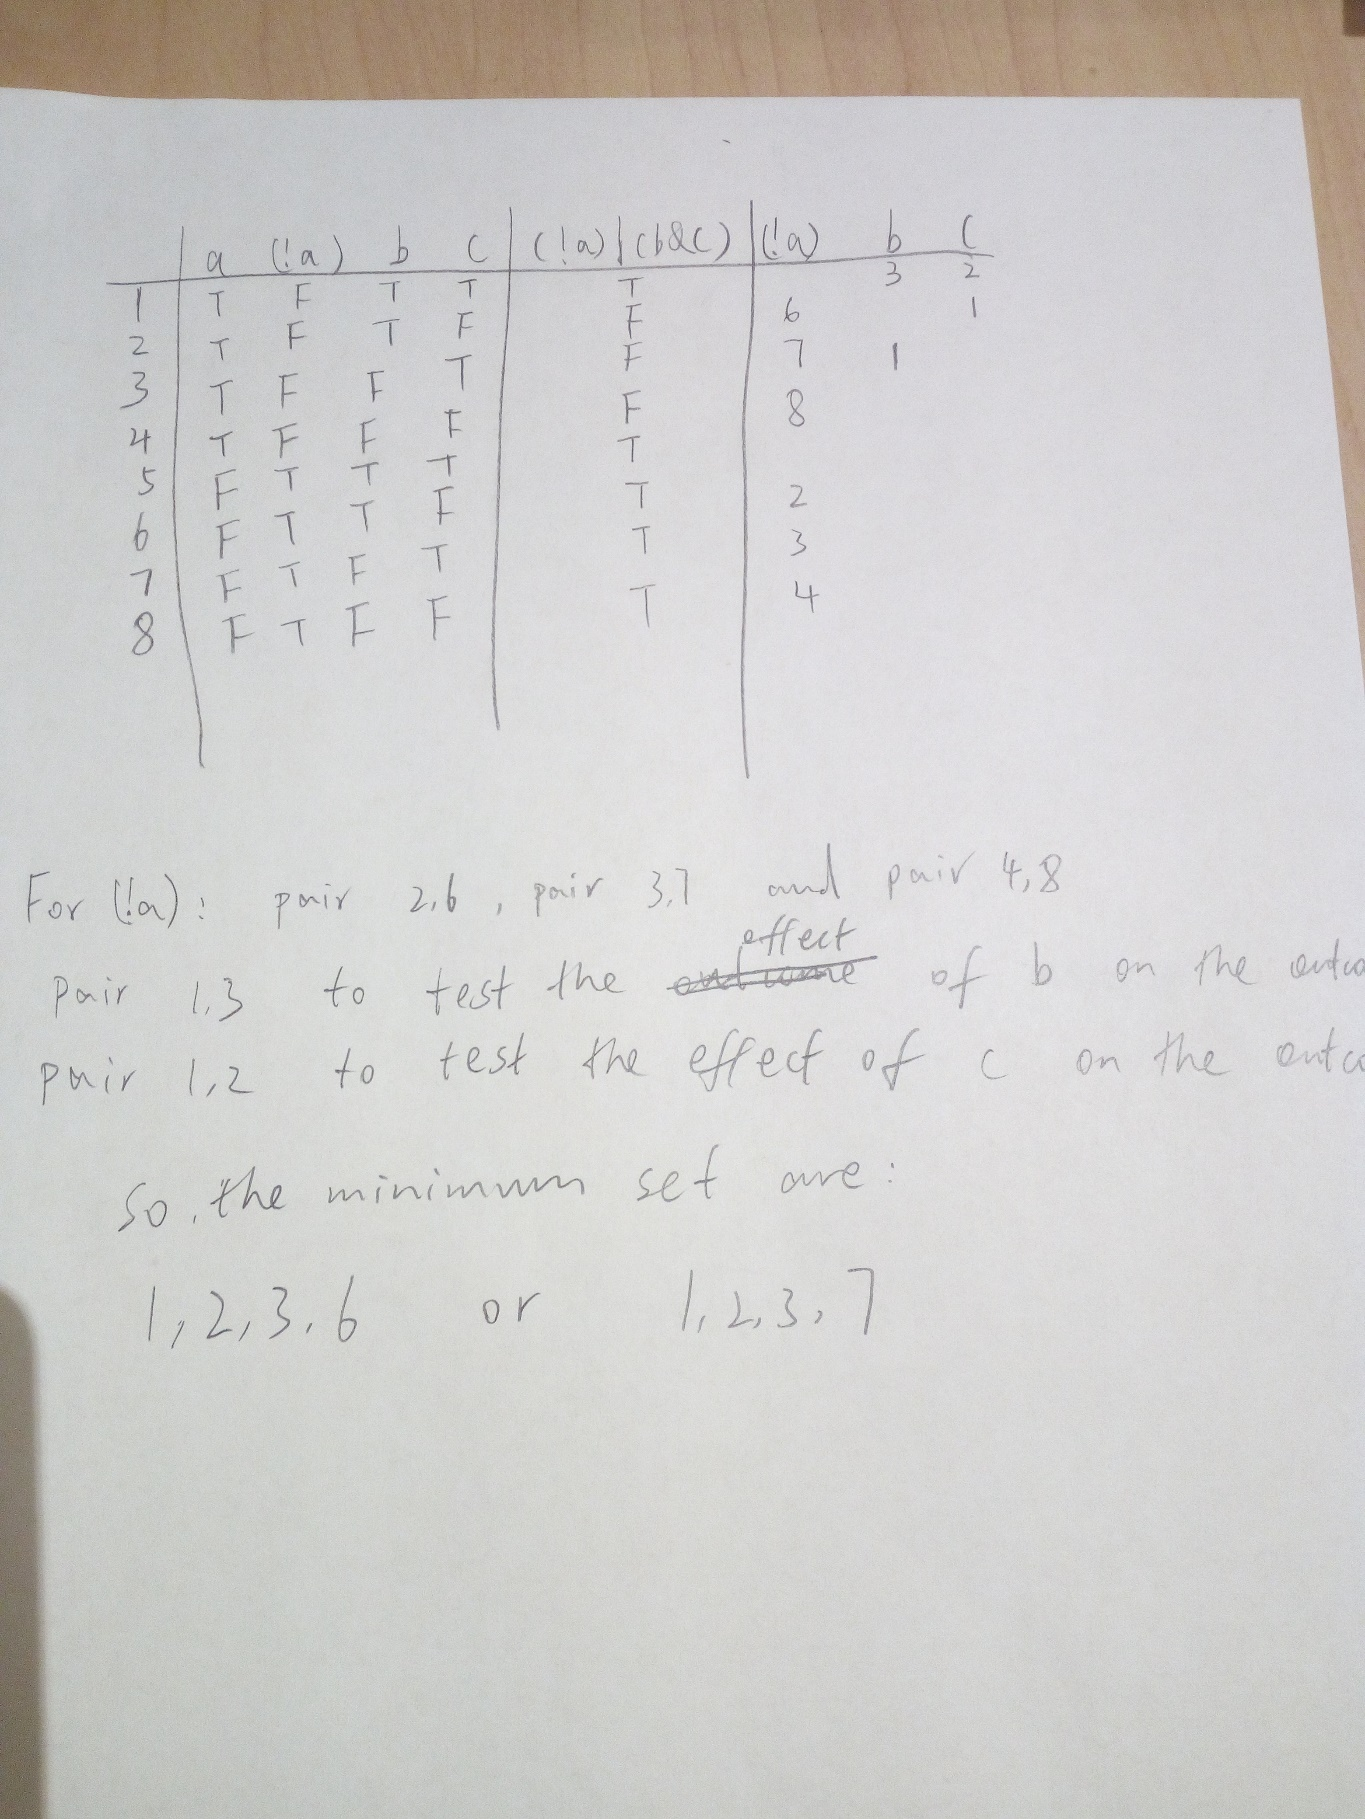 a (!a) b c (!a)|(b&c) (!a) b c
1 T F T T T 3 2
2 T F T F F 6 1
3 T F F T F 7 1
4 T F F F F 8
5 F T T T T
6 F T T F T 2
7 F T F T T 3
8 F T F F T 4
For (!a): pair 2,6, pair 3,7 and pair 4,8
effect
pair 1,3 to test the outcome of b on the
pair 1,2 to test the effect of c on the
So, the minimum set are:
1,2,3,6 or 1,2,3,7